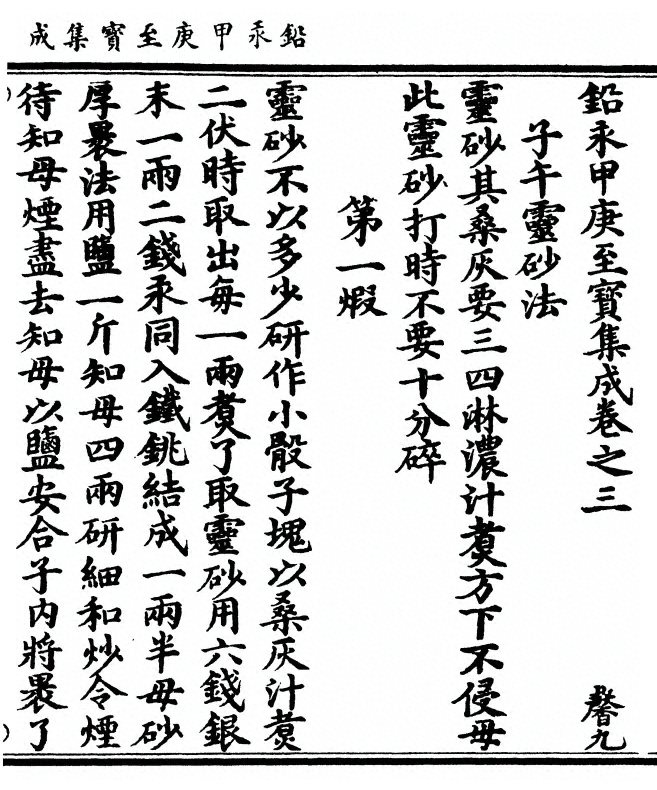 鉛汞甲庚至寶集成
鉛汞甲庚至寶集成卷之三 馨九
子午靈砂法
靈砂其桑灰要三四淋濃汁煑方下不侵母
此靈砂打時不要十分碎
第一煆
靈砂不以多少研作小骰子塊以桑灰汁煑
二伏時取出每一兩煑了取靈砂用六錢銀
末一兩二錢汞同入鐵銚結成一兩半母砂
厚褁法用鹽一斤知母四兩研細和炒令煙
待知母煙盡去知母以鹽安合子内將褁了